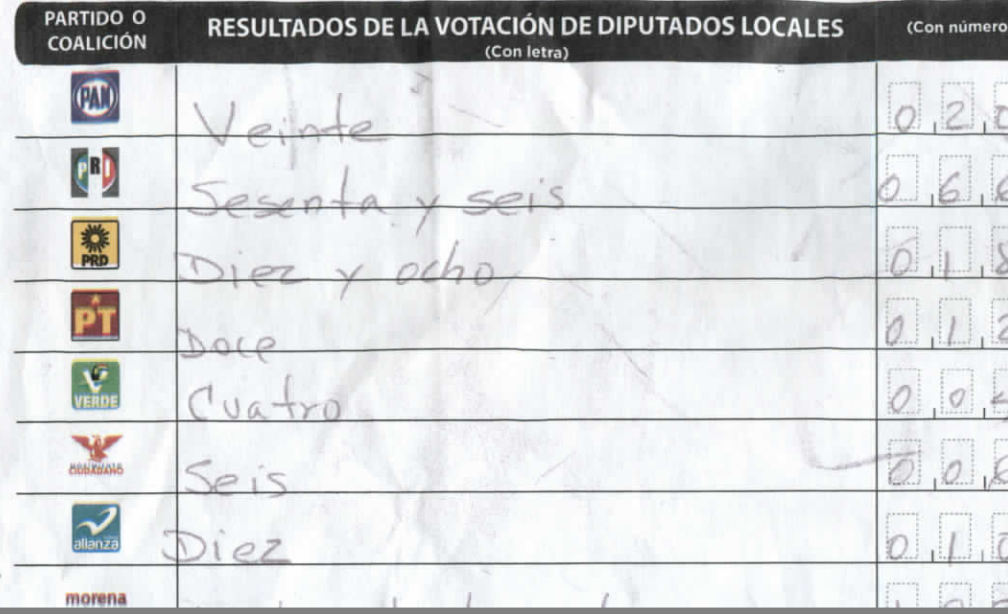 PARTIDO O COALICIÓN
RESULTADOS DE LA VOTACIÓN DE DIPUTADOS LOCALES
(Con letra)
(Con número
PAN Veinte 0 2
PRI Sesenta y seis 0 6 6
PRD Diez y ocho 0 1 8
PT Doce 0 1
VERDE Cuatro 0 0
CIUDADANO Seis 0 0
alianza Diez 0 1 0
morena